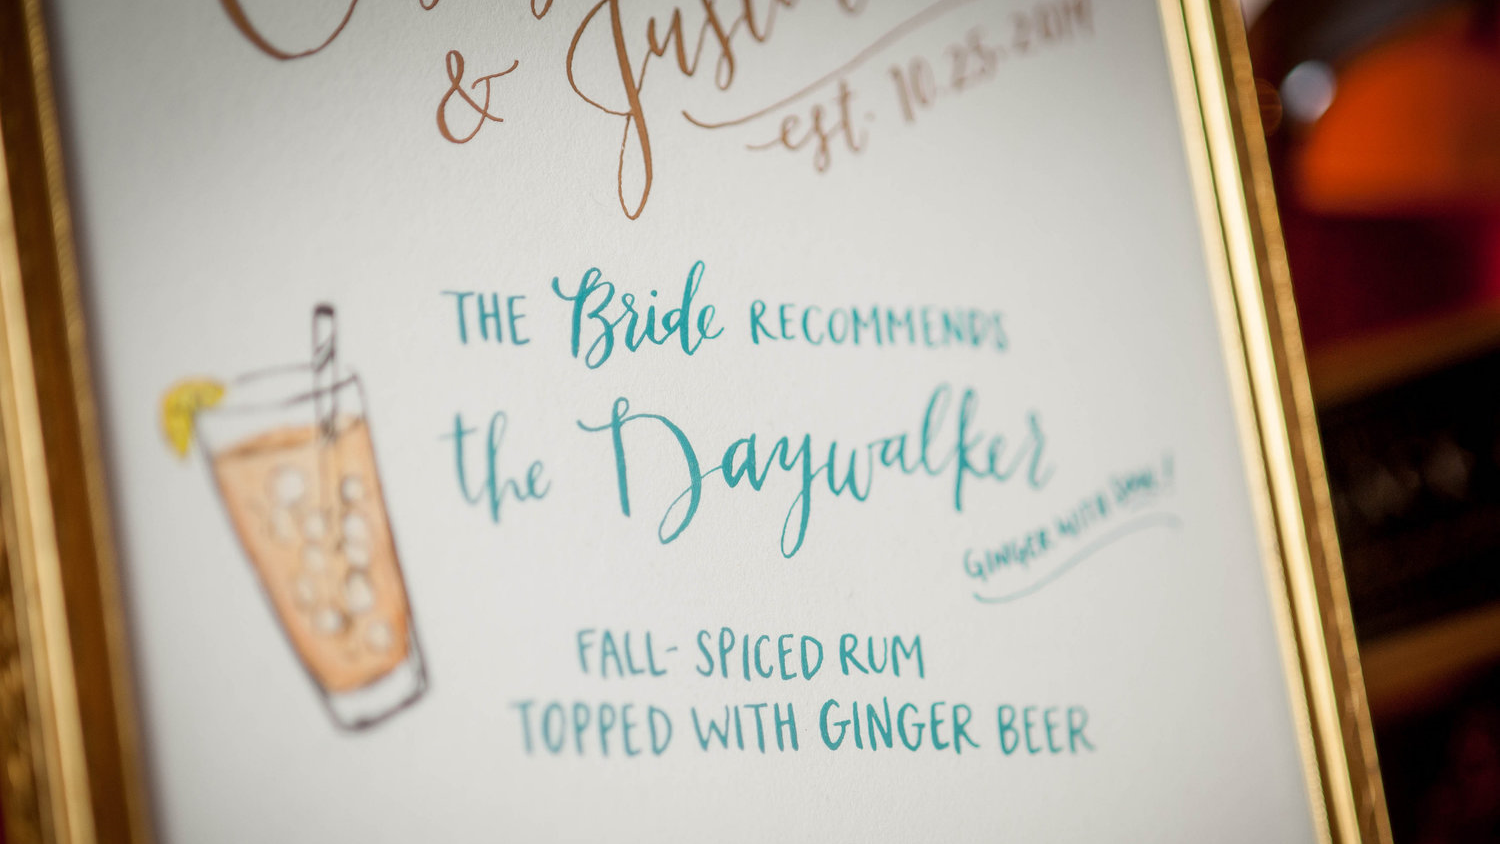 & Just
est. 10.25.2014
THE Bride RECOMMENDS
the Daywalker
GINGER WITH SOUL!
FALL-SPICED RUM
TOPPED WITH GINGER BEER